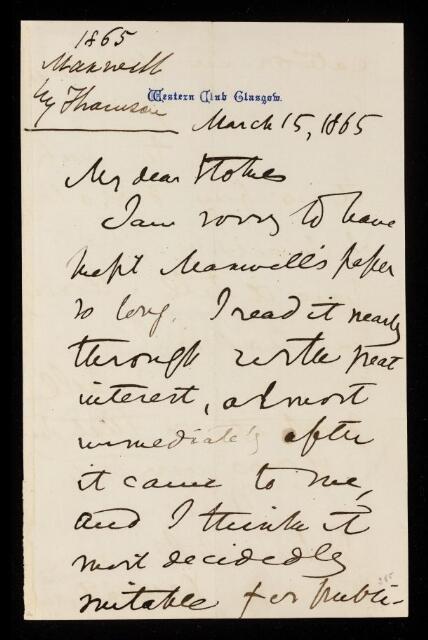 1865
Maxwell
by Thomson
Western Club Glasgow.
March 15, 1865
My dear Stokes
I am sorry to have
kept Maxwell's paper
so long. I read it nearly
through with great
interest, almost
immediately after
it came to me,
and I think it
most decidedly
suitable for publi-